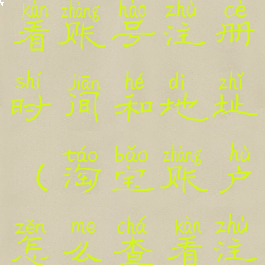 kàn zhàng hào zhù cè
看账号注册
shí jiān hé dì zhǐ
时间和地址
táo bǎo zhàng hù
（淘宝账户
zěn me chá kàn zhù
怎么查看注